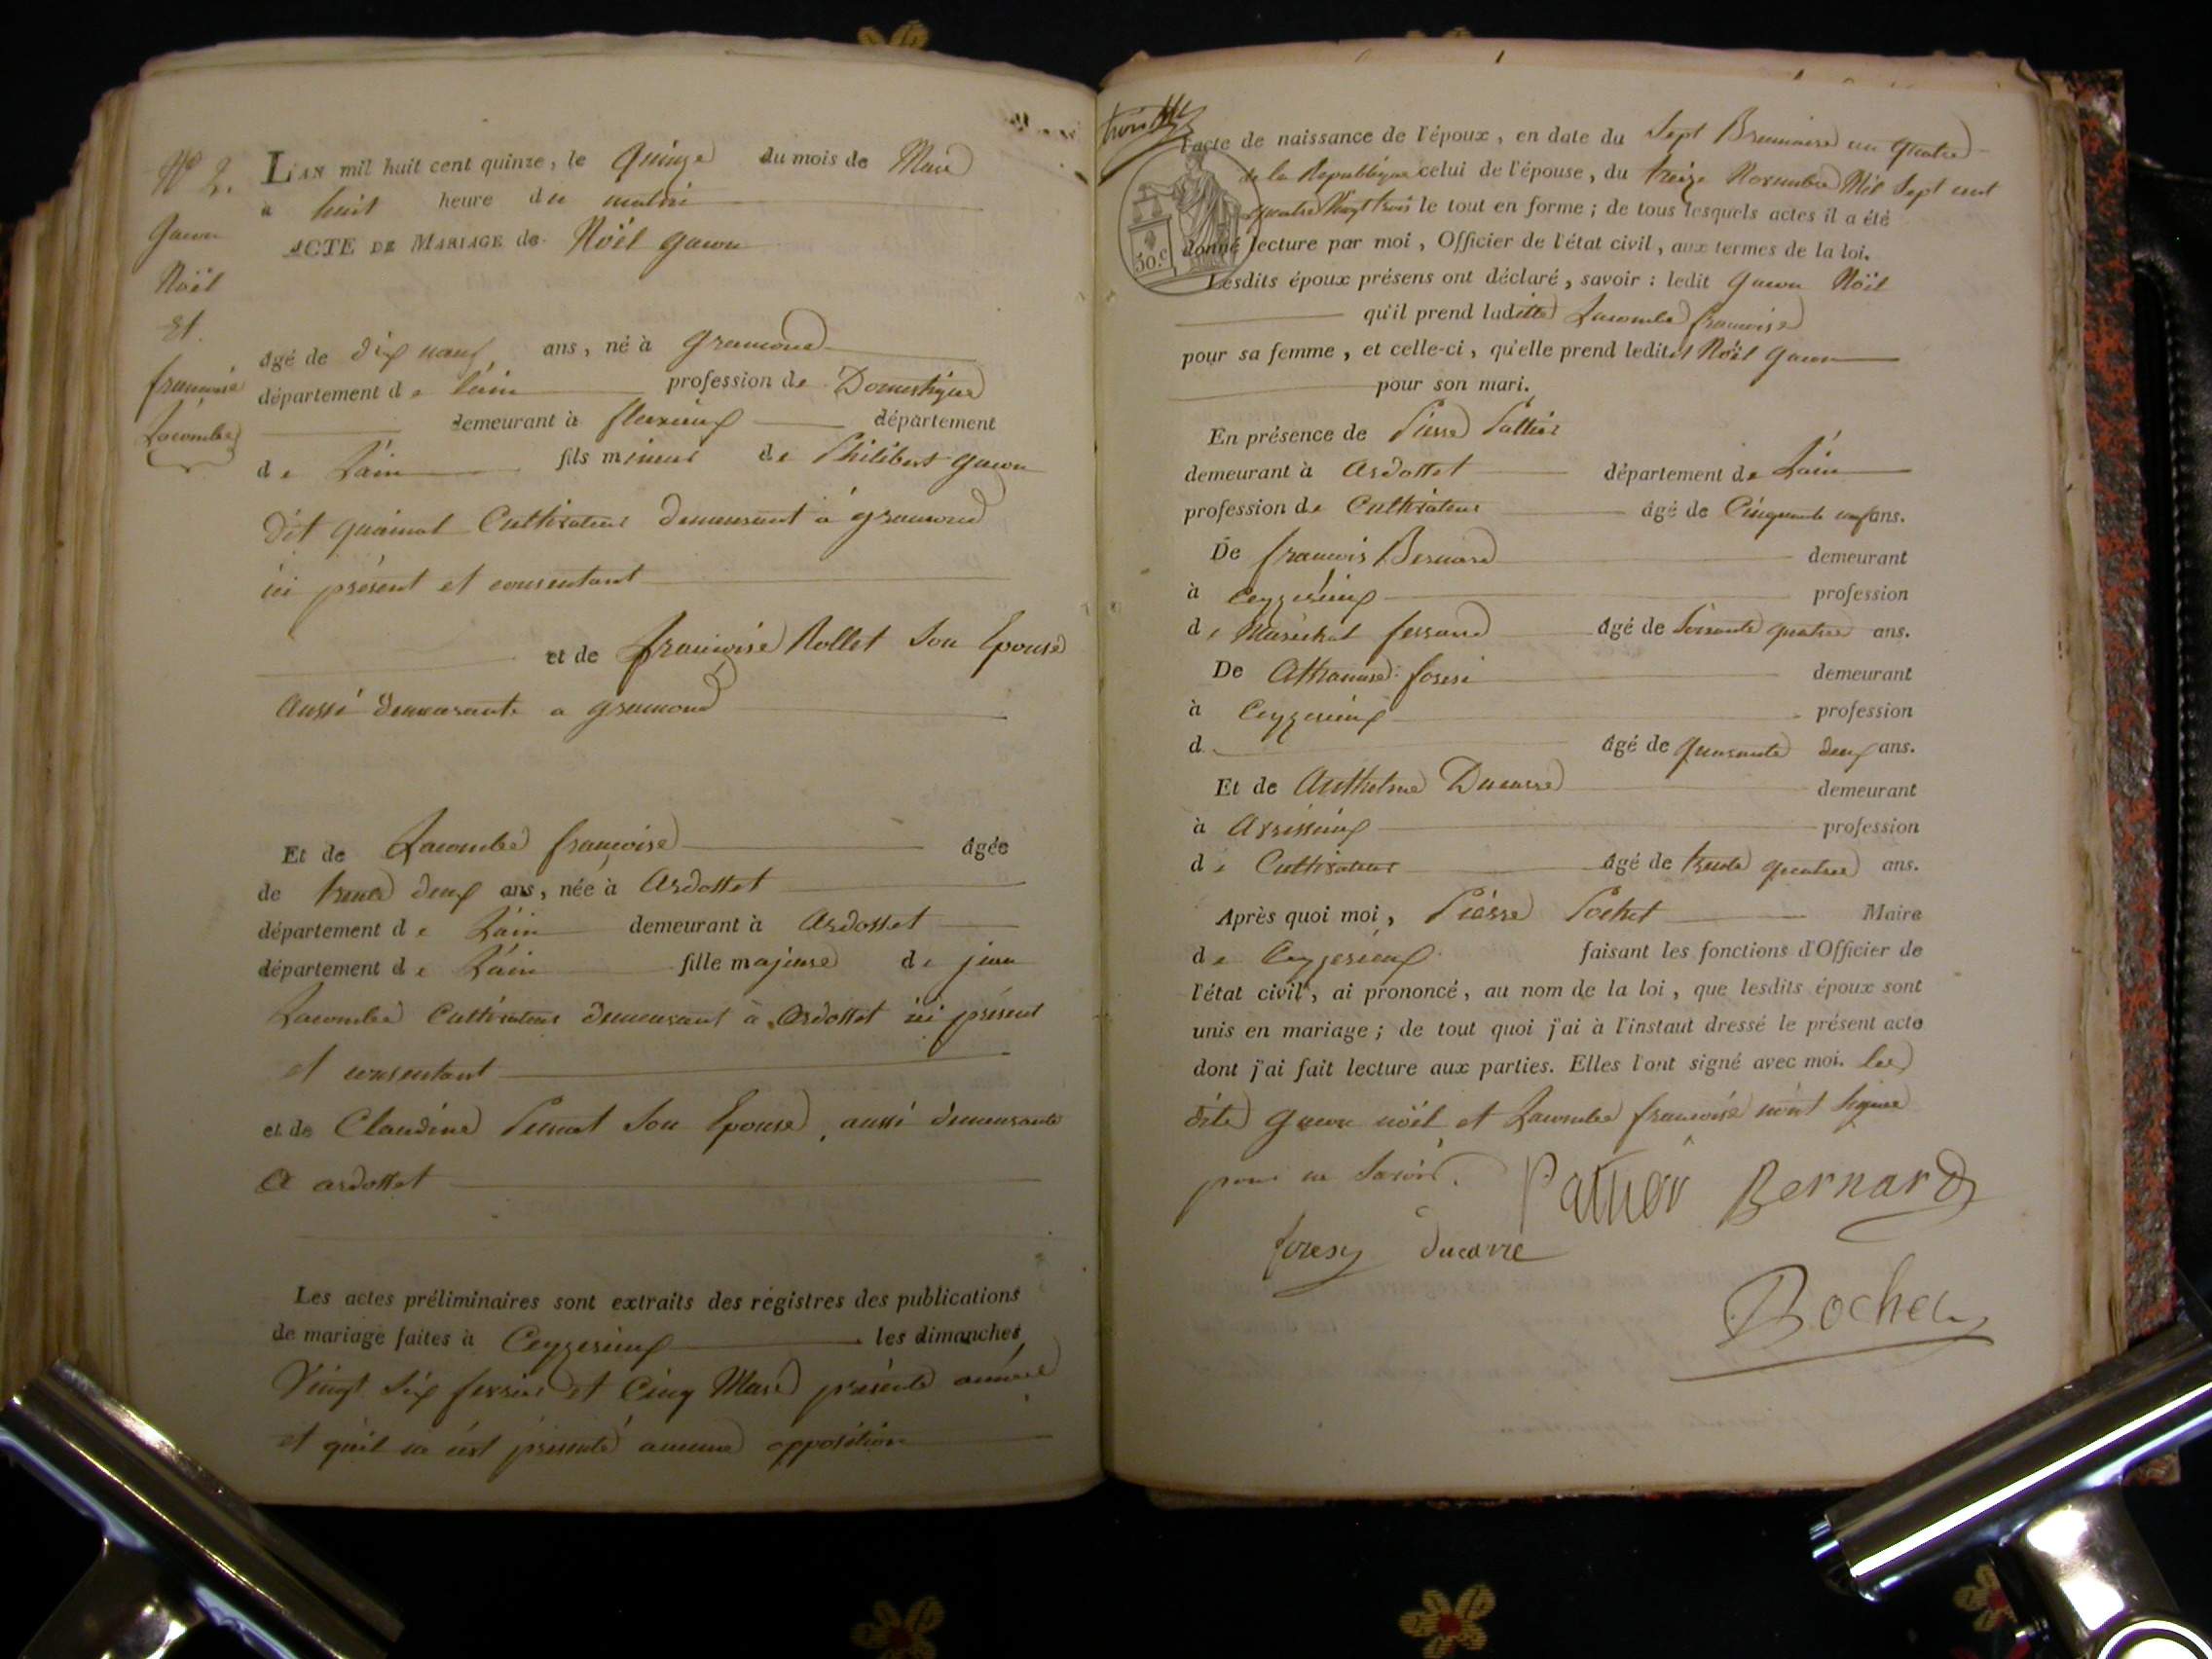 N° 2.
Gacon
Noël
Et
françoise
Lacombe
L'AN mil huit cent quinze, le Quinze du mois de Mars
à huit heure du matin
ACTE DE MARIAGE de Noël Gacon
âgé de dix neuf ans, né à Gramond
département de Lain profession de Domestique
demeurant à flaxieux département
de Lain fils mineur de Philibert Gacon
dit quainat Cultivateur demeurant à Gramond
ici présent et consentant
et de françoise Rollet Son Epouse
Aussi demeurante a Gramond
Et de Lacombe françoise âgée
de trente deux ans, née à Ardosset
département de Lain demeurant à Ardosset
département de Lain fille majeure de jean
Lacombe Cultivateur demeurant à Ardosset ici présent
et consentant
et de Claudine Son Epouse, aussi demeurante
a ardosset
Les actes préliminaires sont extraits des régistres des publications
de mariage faites à Ceyzerieux les dimanches
Vingt Six fevrier et Cinq Mars présente année
et qu'il ne s'est présenté aucune opposition
L'acte de naissance de l'époux, en date du Sept Brumaire an quatre
de la Republique celui de l'épouse, du treize Novembre Mil Sept cent
quatre Vingt trois le tout en forme; de tous lesquels actes il a été
donné lecture par moi, Officier de l'état civil, aux termes de la loi.
30.c
Lesdits époux présens ont déclaré, savoir: ledit Gacon Noël
qu'il prend laditte Lacombe françoise
pour sa femme, et celle-ci, qu'elle prend ledit Noël Gacon
pour son mari.
En présence de Pierre Pattier
demeurant à Ardosset département de Lain
profession de Cultivateur âgé de Cinquante neuf ans.
De francois Bernard demeurant
à Ceyzerieux profession
de Maréchal ferrand âgé de Soixante quatre ans.
De Athanase foresi demeurant
à Ceyzerieux profession
d âgé de quarante deux ans.
Et de Anthelme Ducarre demeurant
à Avrissieux profession
de Cultivateur âgé de trente quatre ans.
Après quoi moi, Pierre Pochet Maire
de Ceyzerieux faisant les fonctions d'Officier de
l'état civil, ai prononcé, au nom de la loi, que lesdits époux sont
unis en mariage; de tout quoi j'ai à l'instant dressé le présent acte
dont j'ai fait lecture aux parties. Elles l'ont signé avec moi. les
dits Gacon noël et Lacombe francoise n'ont signé
pour ne Savoir. Pattier Bernard
foresy ducarre
Pochet